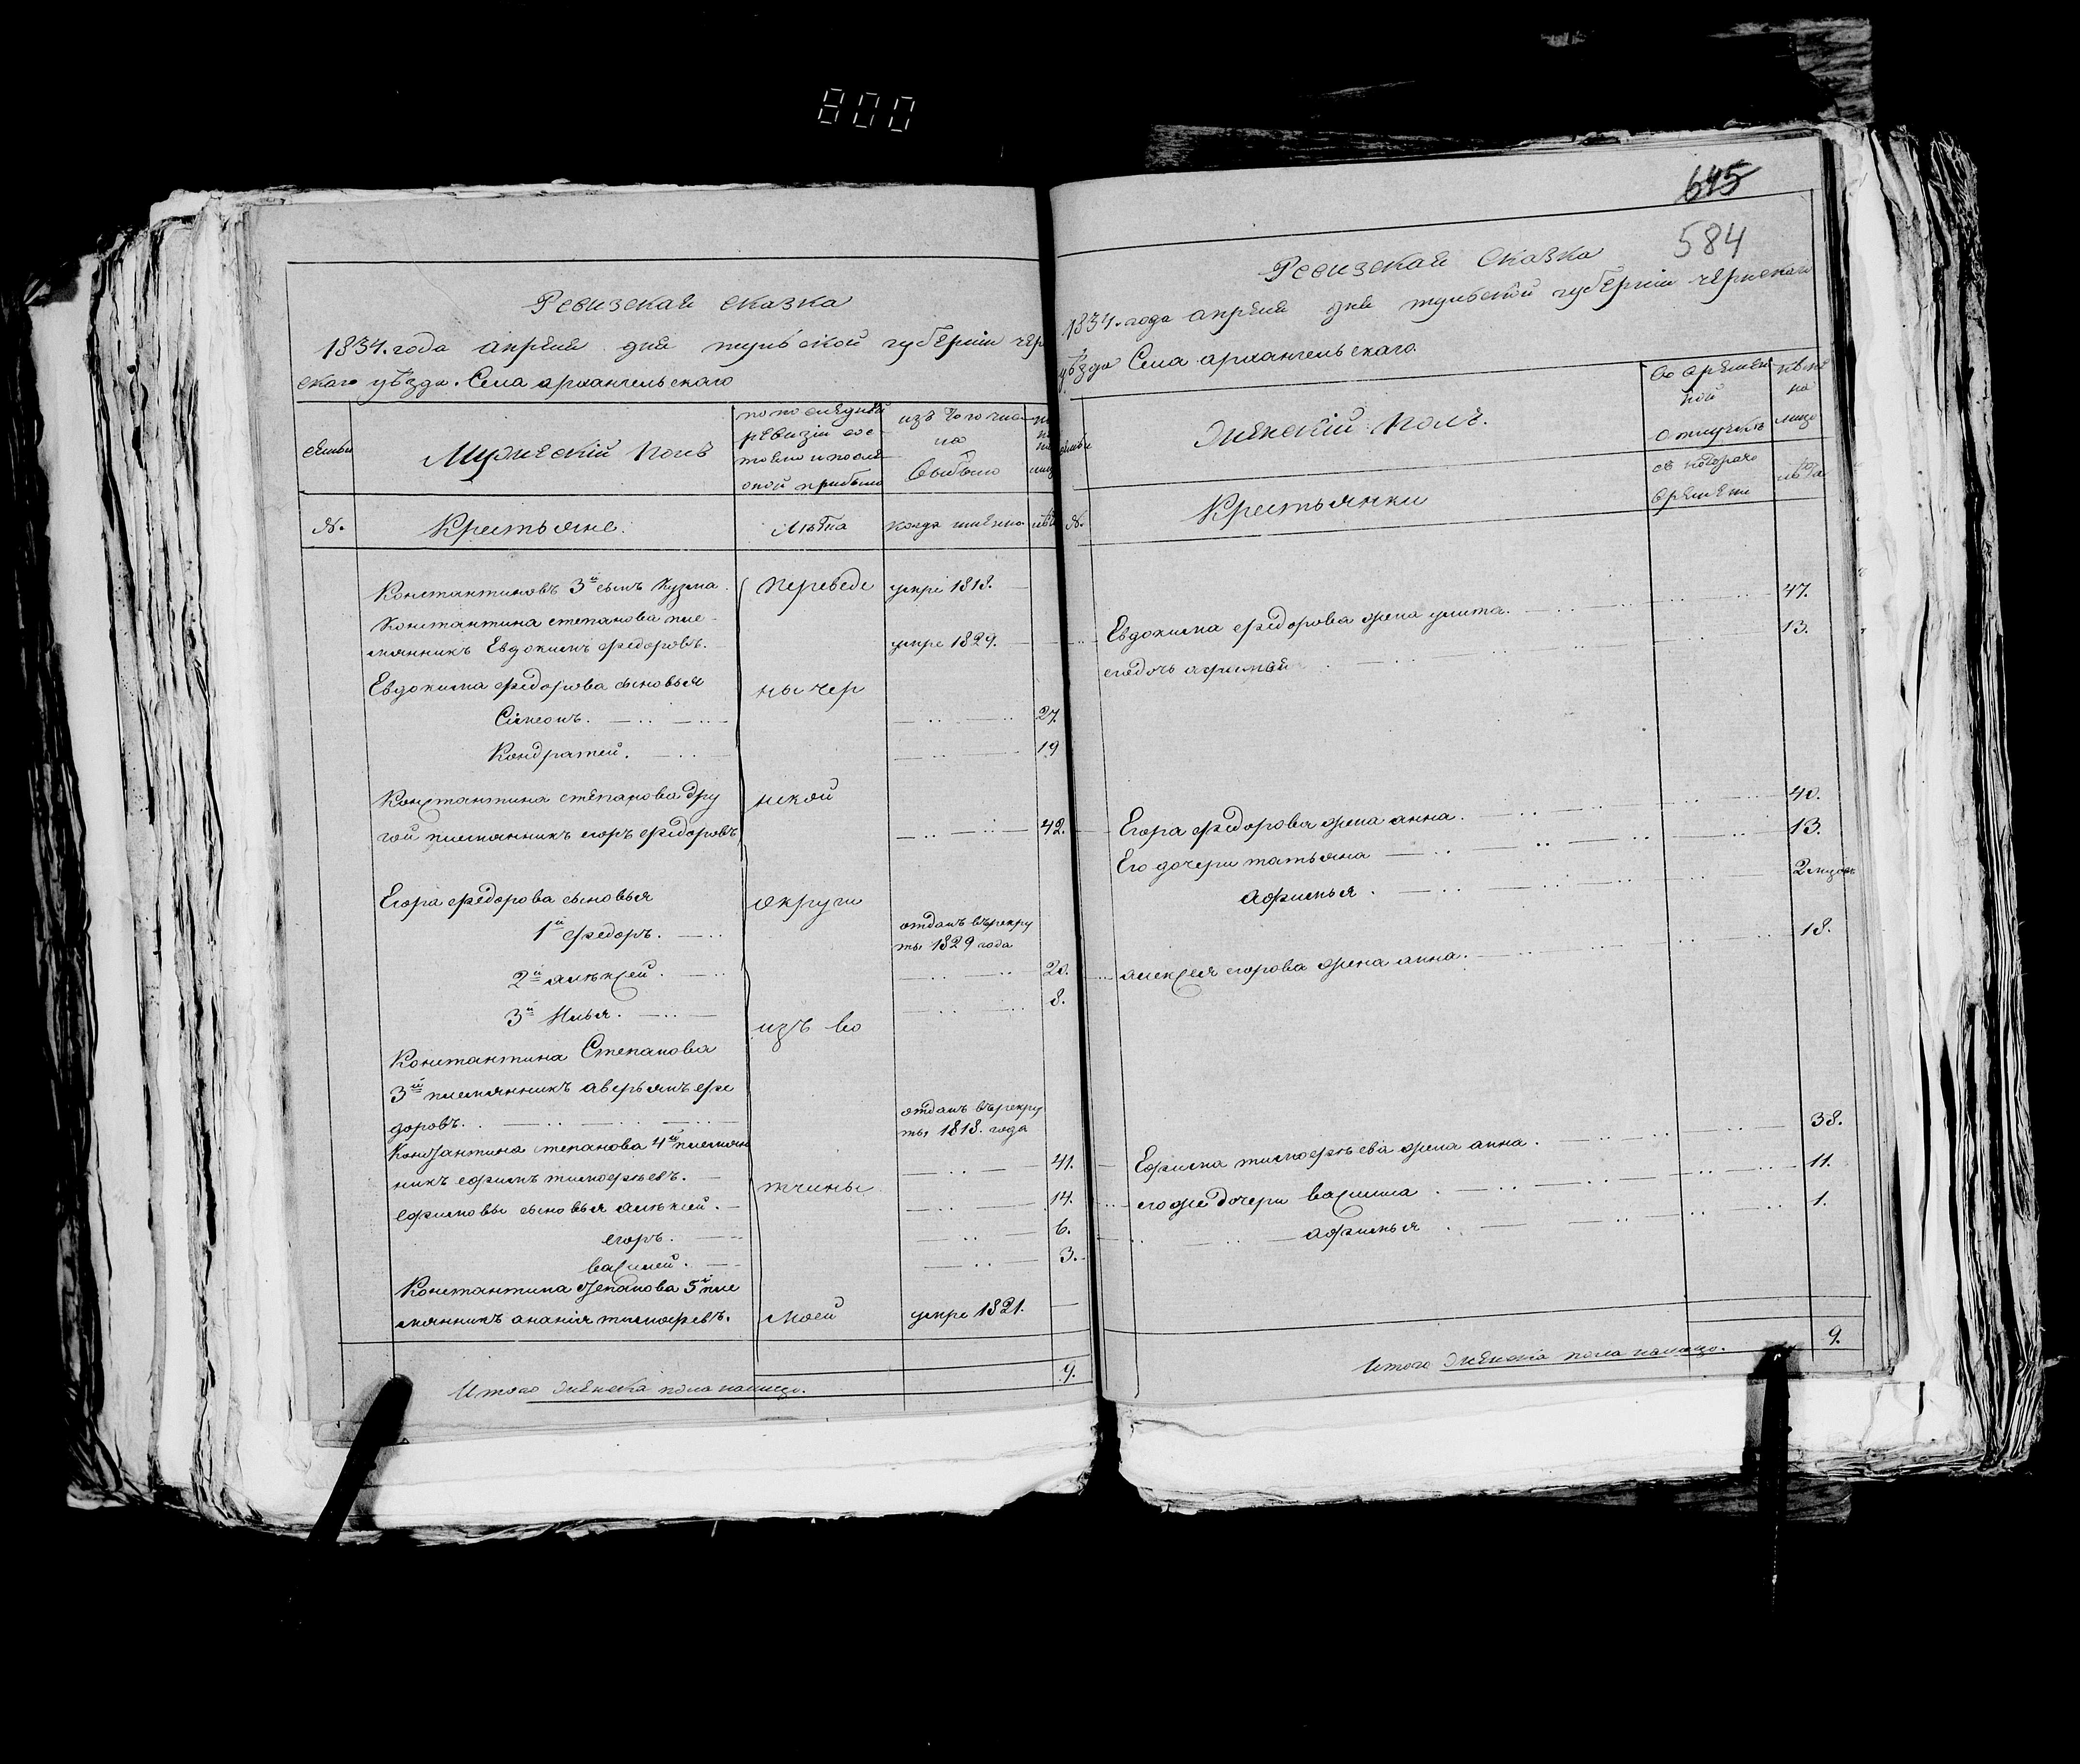 800
Ревизская сказка
1834. года апреля дня тульской губернiи чер
скаго уѣзда. Села архангельскаго
семьи
Мужескiй полъ
по последней
ревизiи сос-
тояло и после
оной прибыло
изъ того чис-
ла
выбыло
№.
Крестьяне.
Лѣта
когда имянно
Константиновъ 3й сынъ Кузма.
переведе
умре 1818.
Константина степанова пле-
мянникъ Евдокимъ федоровъ.
умре 1829.
Евдокима федорова сыновья
ны чер
Сiмеонъ.
27
Кондратей.
19
Константина степанова дру
нской
гой племянникъ егоръ федоровъ
42.
Егора федорова сыновья
округи
1й федоръ.
отданъ върекру
ты 1829 года
2й алѣксей.
20.
3й Илья.
8.
изъ во
Константина Степанова
3й племянникъ аверьянъ фе
доровъ.
отданъ върекру
ты 1818. года
Константина степанова 4й племян
никъ ефимъ тимофѣевъ.
41.
тчины
ефимовы сыновья алѣксей.
14.
егоръ.
6.
василей.
3.
Константина степанова 5й пле
мянникъ ананiя тимофевъ.
моей
умре 1821.
Итого мужеска пола налицо.
9.
645
584
Ревизская сказка
1834. года апреля дня тульской губернiи чернскаго
уѣзда Села архангельскаго.
семьи
Женскiй полъ.
во времен
ной
отлучкѣ
на
лицо
№.
Крестьянки
съ котораго
времени
лѣта
47.
Евдокима федорова жена улита.
13.
егодочь афимья
40.
Егора федорова жена анна.
13.
Его дочери татьяна
2 мѣсяц
афимья.
18.
алексея егорова жена анна.
38.
Ефима тимофѣева жена анна.
11.
егоже дочери василиса.
1.
афимья.
Итого женска пола налицо.
9.